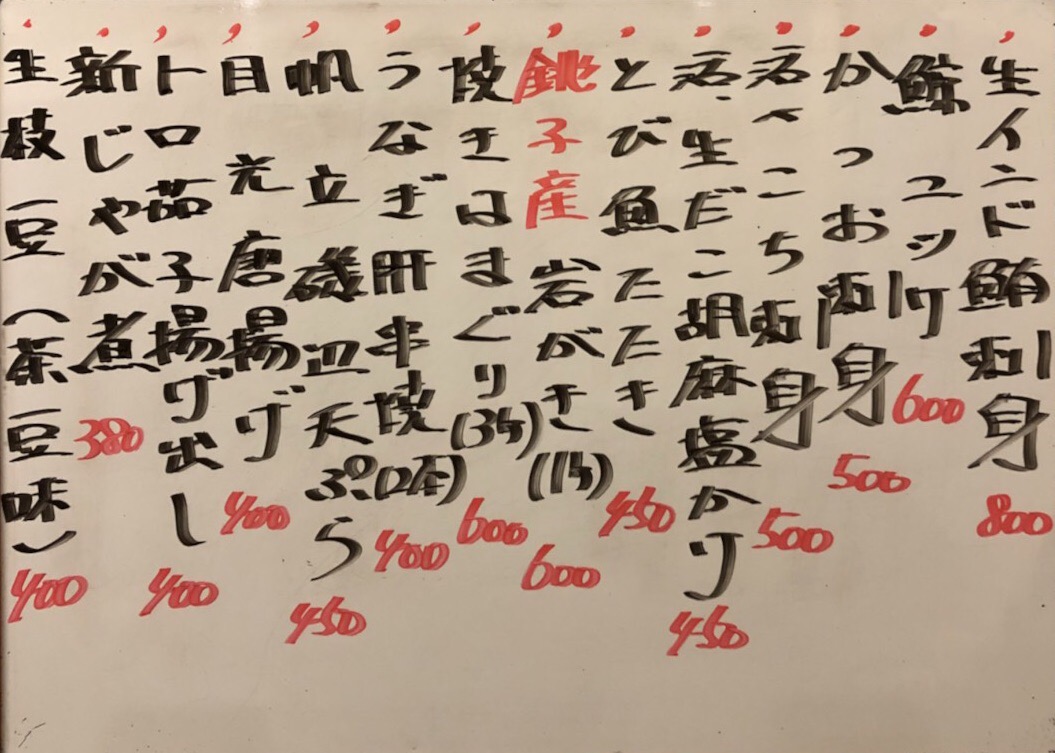 生インド鮪刺身 800
鯨ユッケ 600
かつお刺身 500
石べこち刺身 500
活〆生だこ胡麻塩かけ 450
とび魚たたき 450
銚子産岩がき(1ヶ) 600
焼きはまぐり(3ケ) 600
うなぎ肝串焼(2本) 400
帆立磯辺天ぷら 450
目光唐揚げ 400
トロ茄子揚げ出し 400
新じゃが煮 380
生枝豆(茶豆味) 400